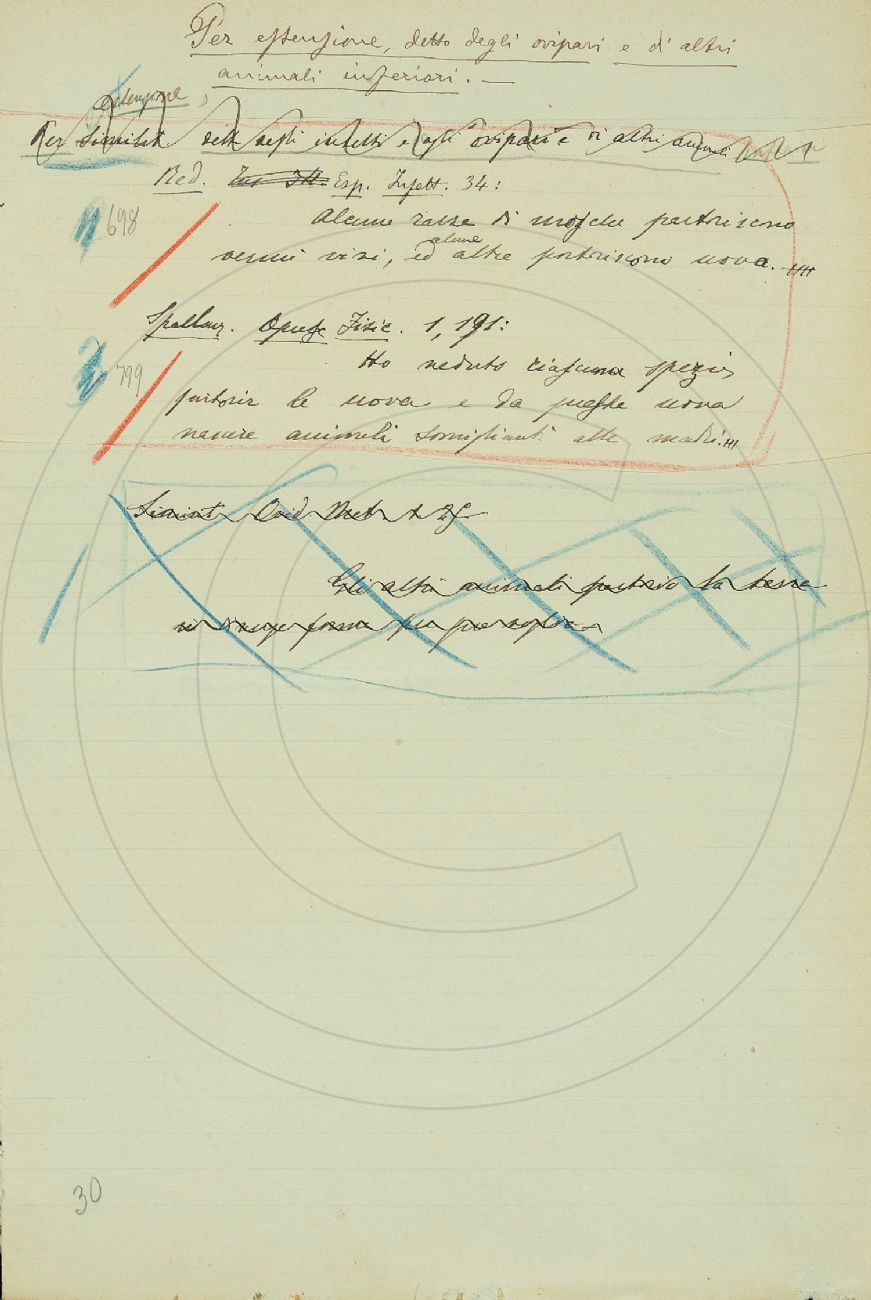 Per estensione, detto degli ovipari e di altri
animali inferiori. —
estensione,
Per similit. detto degli insetti e degli ovipari e di altri animali
Red. Esp. Insett. 34:
698
Alcune razze di mosche partoriscono
alcune
vermi vivi, ed altre partoriscono uova.
Spallanz. Opusc. Fisic. 1, 191:
799
Ho veduto ciascuna spezie
partorir le uova e da queste uova
nascere animali somiglianti alle madri.
Simint. Ovid. Met. 1. 25
Gli altri animali partorio la terra
in diverse forme per
30